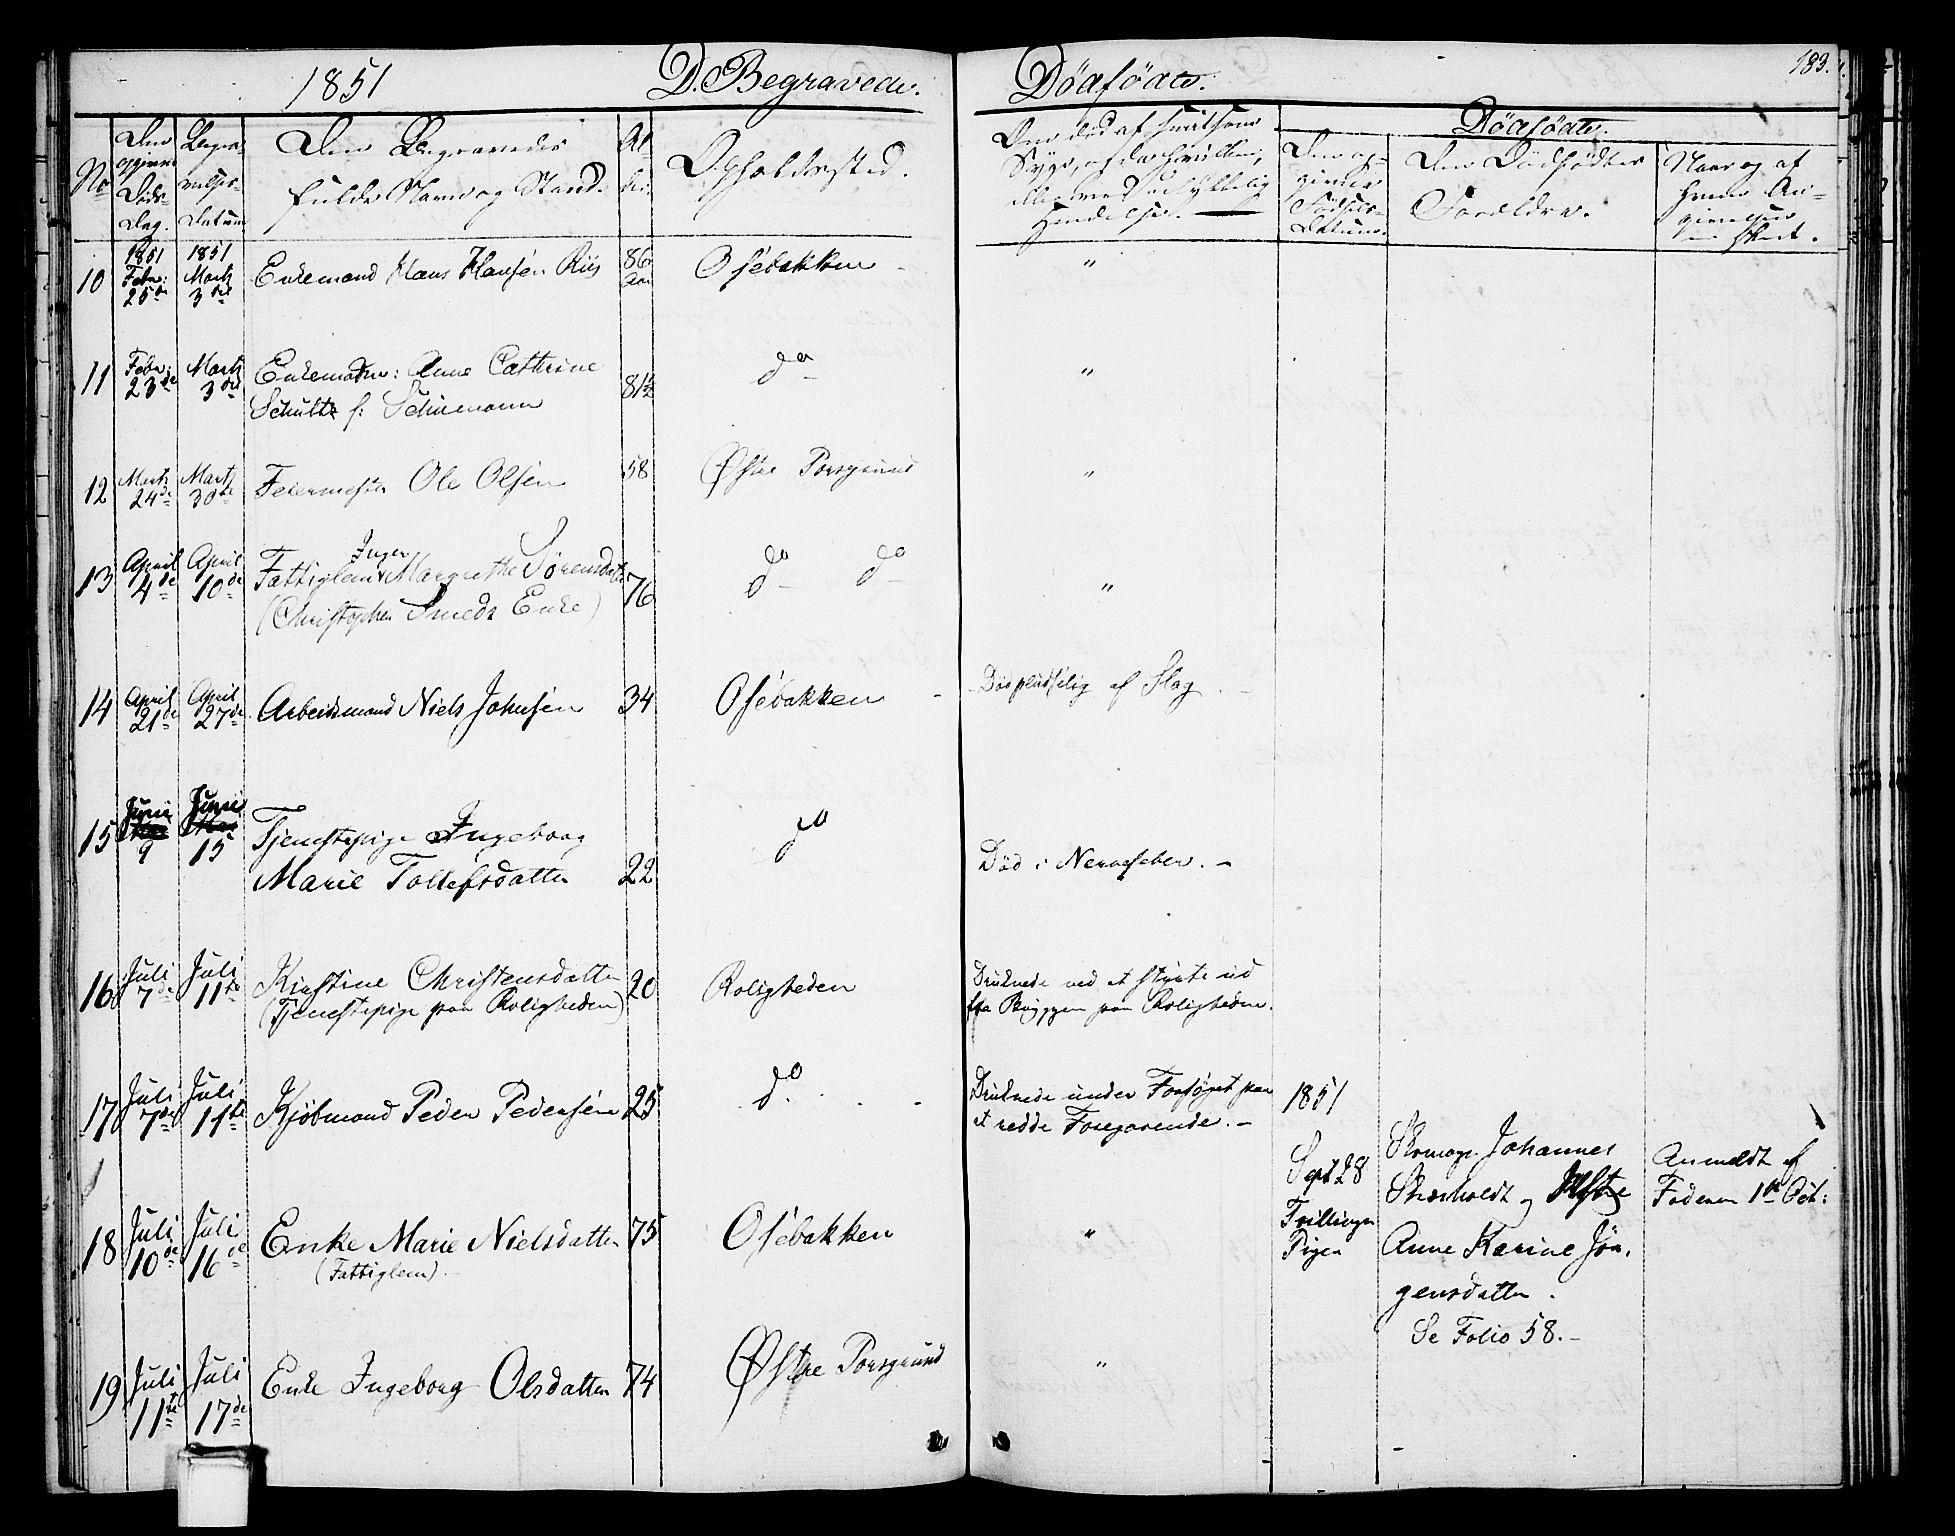 1851
D. Begravede.
Dødfødte.
183.
No
Den opgivne Døds-Dag.
Begra-velses-Datum
Den Begravedes
fulde Navn og Stand.
Al-der.
Opholdssted.
Døde
Syge,
Hændelser.
Dødfødte.
Den op-givne Fødsels-Datum.
Den Dødfødtes
Forældre.
Naar og af
hvem An-
givelsen
er skeet.
10 1851 Febr: 25de 1851 Marts 3die Enkemand Hans Hansen Riis 86 Aar Osebakken "
11 Febr: 23de Marts 3die Enkemadme: Anne Cathrine
Schultz f: Schiemann 81½ do "
12 Marts 24de Marts 30te Feiermester Ole Olsen 58 Østre Porsgrund "
13 April 4de April 10de Fattiglem Inger Margrethe Sørensdatter
(Christopher Smeds Enke) 76 do do "
14 April 21de April 27de Arbeidsmand Niels Johnsen 34 Osebakken Døde pludselig af Slag.
15 Juni 9 Juni 15 Tjenestepige Ingeborg
Marie Tollefsdatter 22 do Død i Nervefeber.
16 Juli 7de Juli 11te Kirstine Christensdatter
(Tjenestepige paa Roligheden) 20 Roligheden Druknede ved at styrte ud
fra Bryggen paa Roligheden.
17 Juli 7de Juli 11te Kjøbmand Peder Pedersen 25 do. Druknede under Forsøget paa
at redde Foregaaende.
1851
Sept 28
Tvillinger
Piger
Skomager Johannes
Skarholdt og
Anne Karine Jør-
gensdatter.
Se Folio 58.
Anmeldt af
Faderen 1te Oct:
18 Juli 10de Juli 16de Enke Marie Nielsdatter
(Fattiglem) 75 Osebakken "
19 Juli 11te Juli 17de Enke Ingeborg Olsdatter 74 Østre Porsgrund "